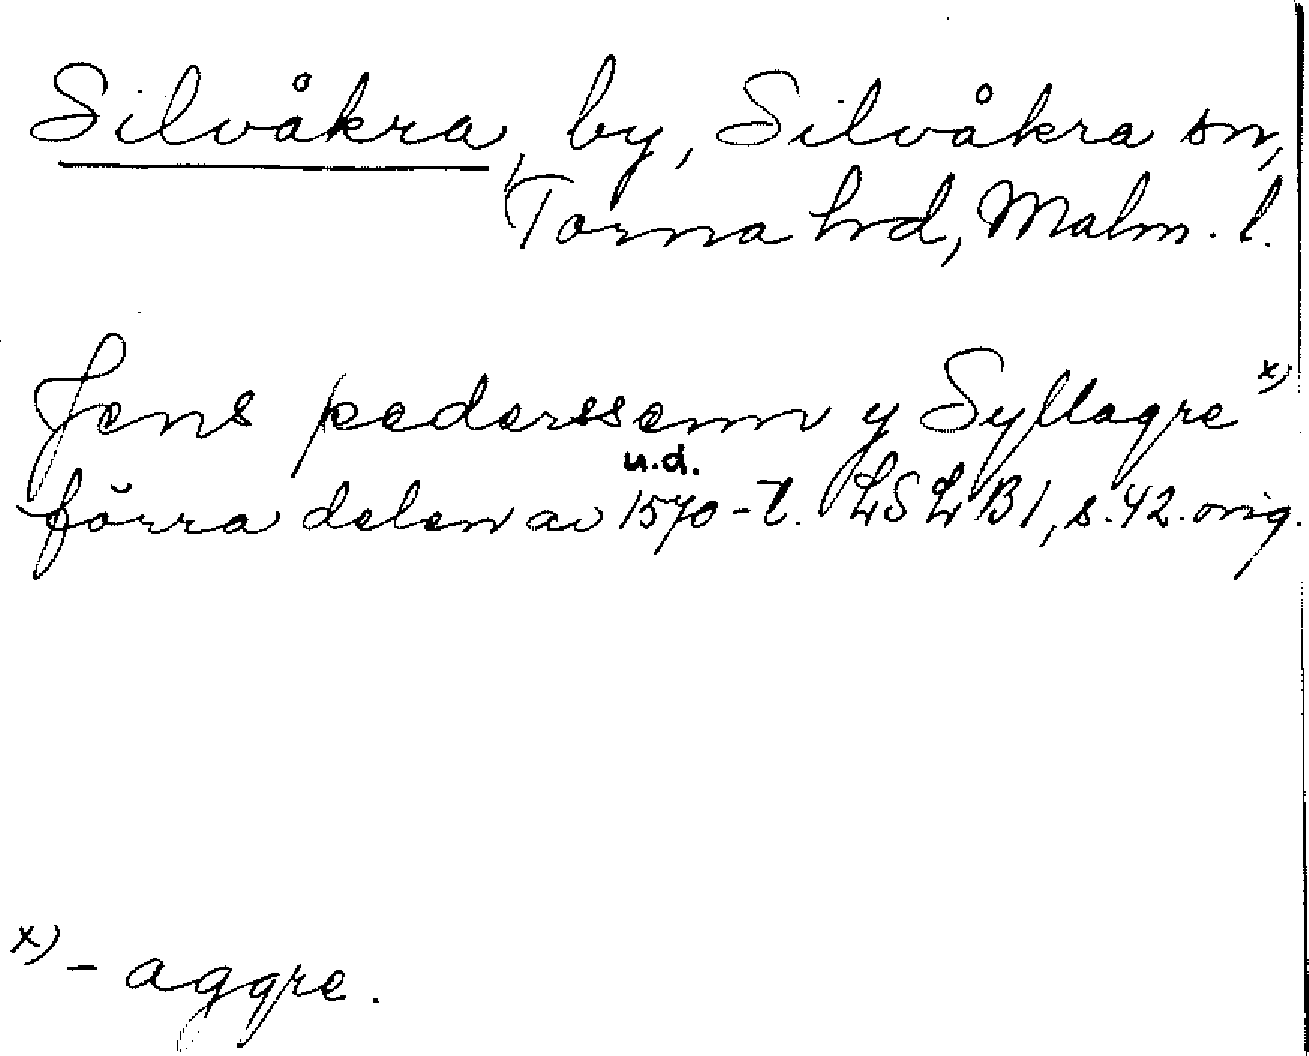 Silvåkra, by, Silvåkra sn,
Torna hrd, Malm. l.
Jens pederssenn y Syllagre x)
u.d.
förra delen av 1570-t. LSLB1, s. 42. orig.
x) - aggre.